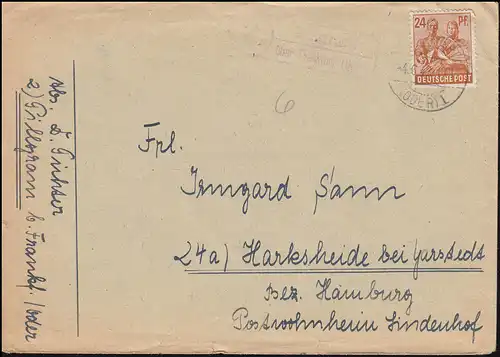 24 PF.
DEUTSCHE POST
(ODER) 1
6
Frl.
Irmgard Sann
24a) Harksheide bei Garstedt
Bez. Hamburg
Postwohnheim Lindenhof
Abs. E. Richter
2) Pillgram b. Frankf. /Oder